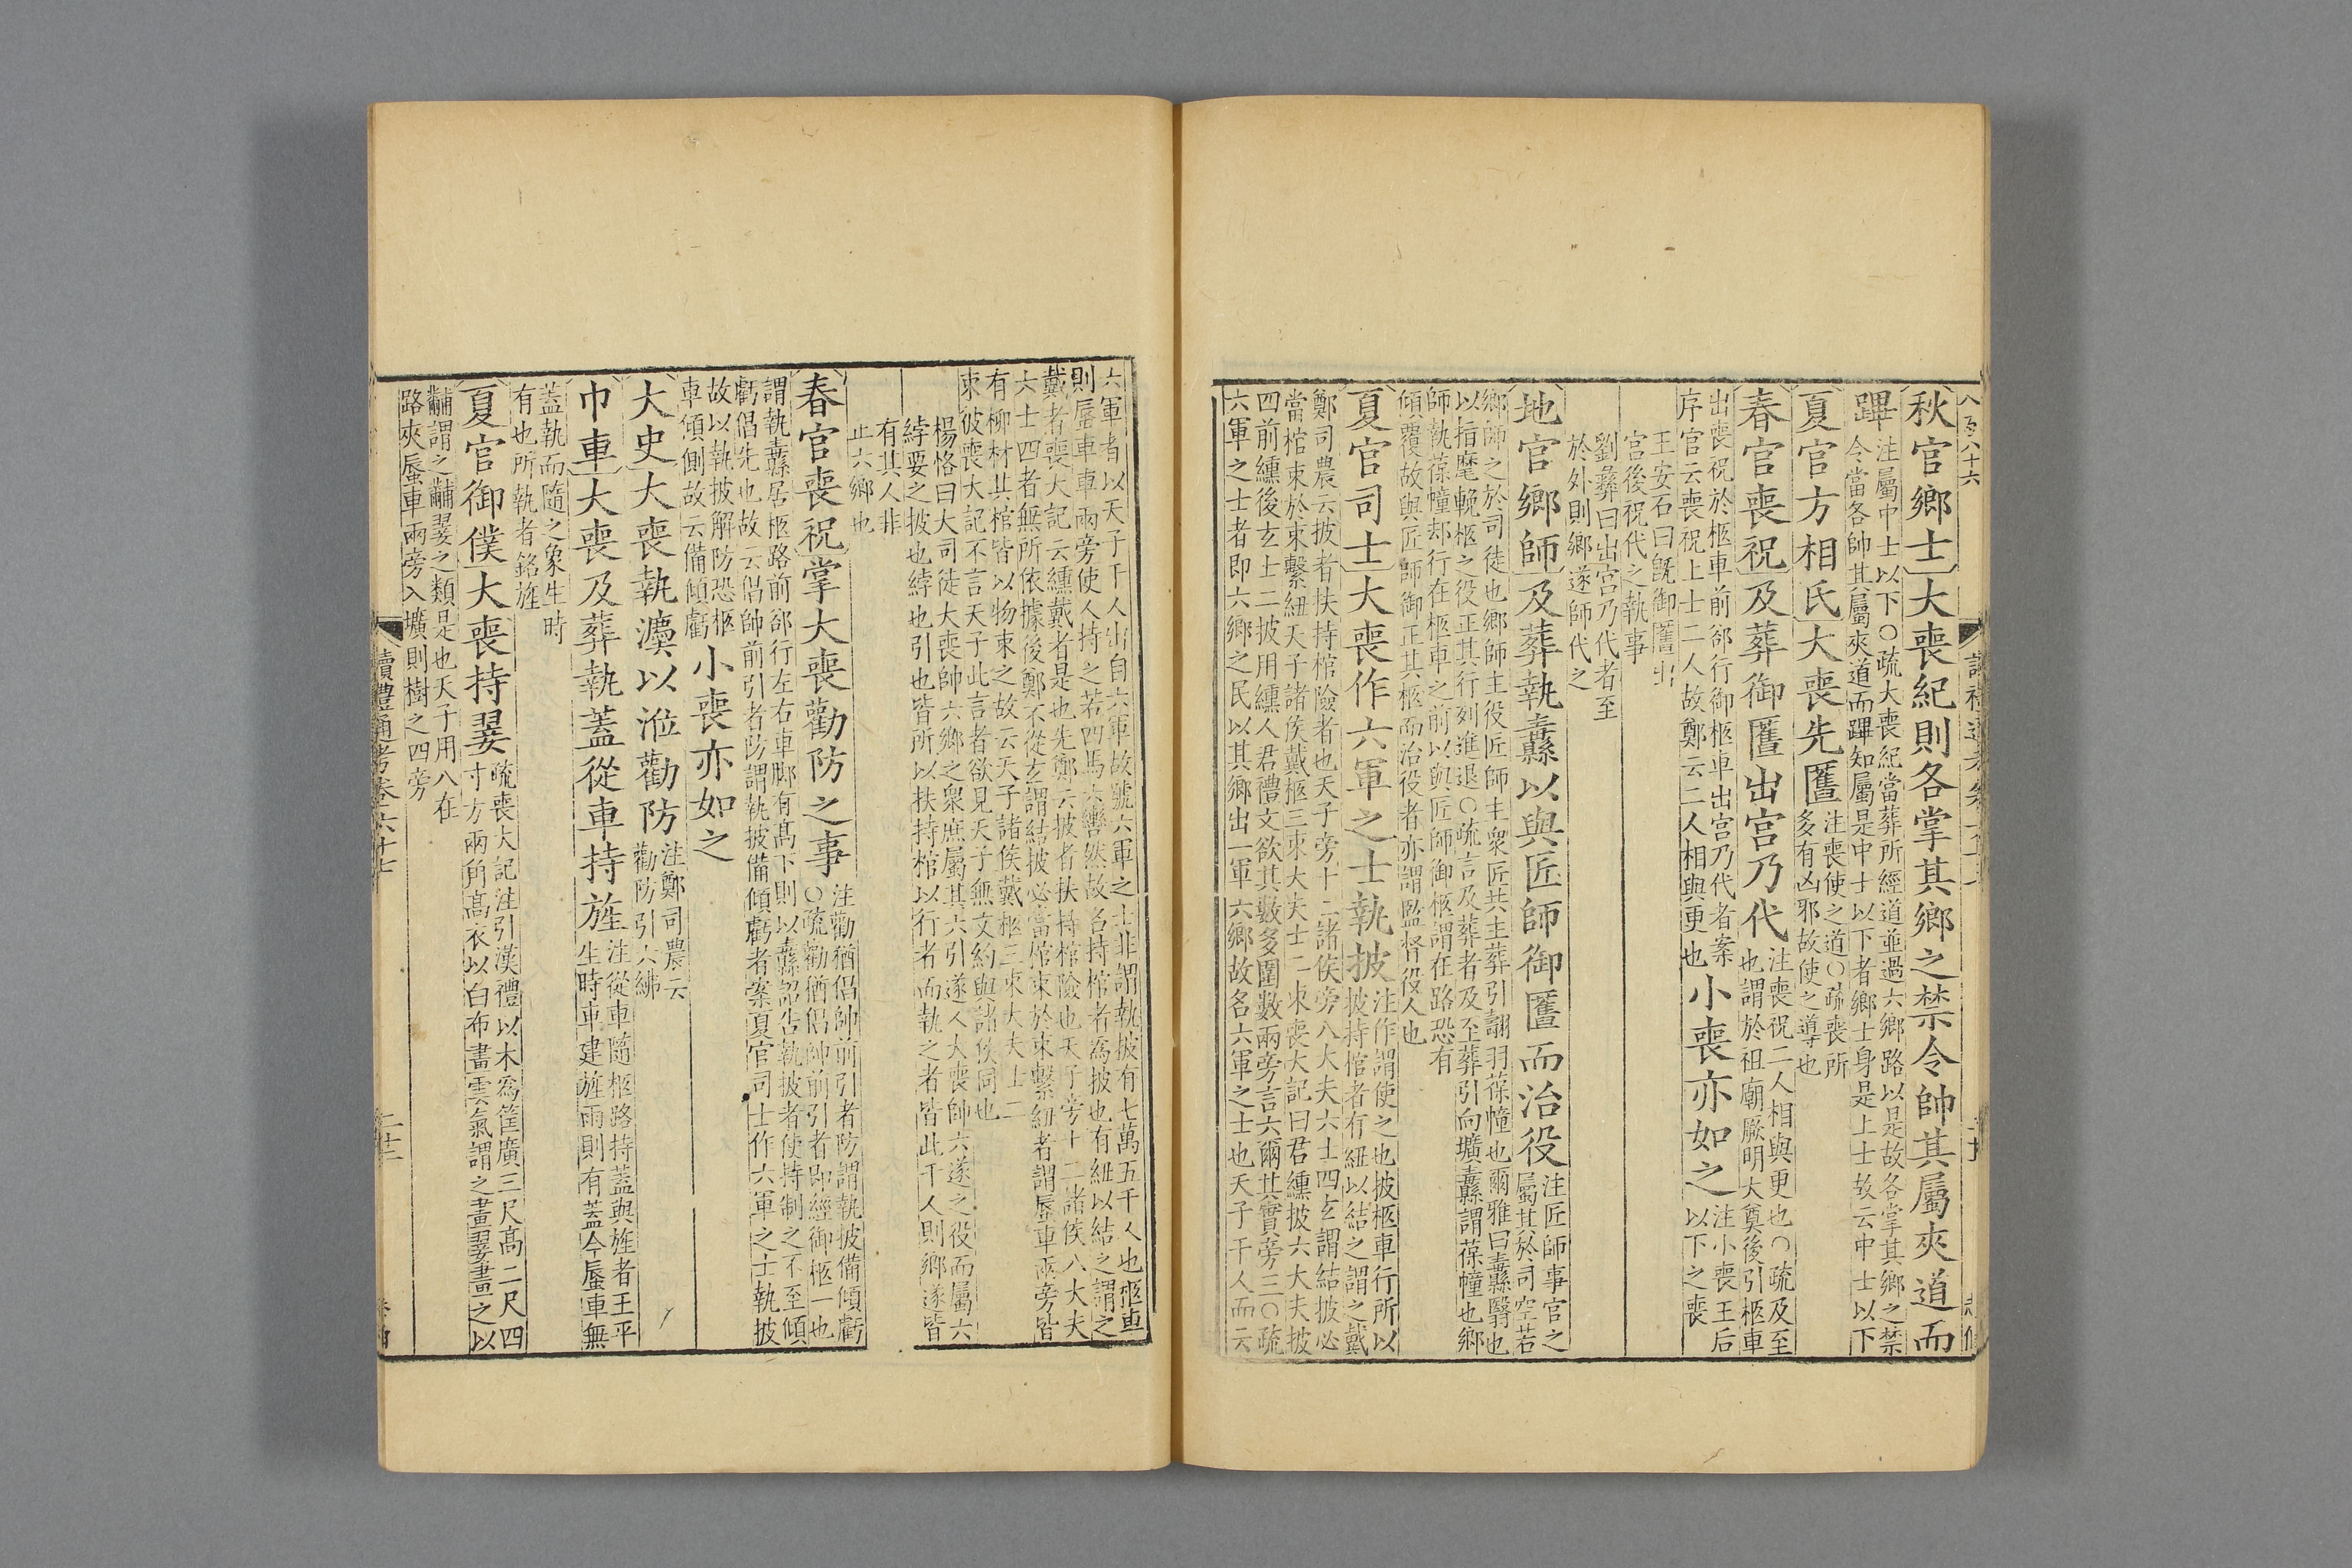 八百八十六
秋官鄉士大喪紀則各掌其鄉之禁令帥其屬夾道而
蹕
注屬中士以下○疏大喪紀當葬所經道並過六鄉路以是故各掌其鄉之禁
今當各帥其屬夾道而蹕知屬是中士以下者鄉士身是上士故云中士以下
夏官方相氏大喪先匶
注喪使之道○疏喪所
多有凶邪故使之導也
春官喪祝及葬御匶出宮乃代
注喪祝二人相與更也○疏及至
也謂於祖廟厥明大奠後引柩車
出喪祝於柩車前郤行御柩車出宮乃代者案
序官云喪祝上士二人故鄭云二人相與更也
小喪亦如之
注小喪王后
以下之喪
王安石曰旣御匶出
宮後祝代之執事
劉彝曰出宮乃代者至
於外則鄉遂師代之
地官鄉師及葬執纛以與匠師御匶而治役
注匠師事官之
屬其於司空若
鄉師之於司徒也鄉師主役匠師主衆匠共主葬引翿羽葆幢也爾雅曰纛翳也
以指麾輓柩之役正其行列進退○疏言及葬者及至葬引向壙纛謂葆幢也鄉
師執葆幢郤行在柩車之前以與匠師御柩謂在路恐有
傾覆故與匠師御正其柩而治役者亦謂監督役人也
夏官司士大喪作六軍之士執披
注作謂使之也披柩車行所以
披持棺者有紐以結之謂之戴
鄭司農云披者扶持棺險者也天子旁十二諸侯旁八大夫六士四玄謂結披必
當棺束於束繫紐天子諸侯戴柩三束大夫士二束喪大記曰君纁披六大夫披
四前纁後玄士二披用纁人君禮文欲其數多圍數兩旁言六爾其實旁三○疏
六軍之士者即六鄉之民以其鄉出一軍六鄉故名六軍之士也天子千人而云
六軍者以天子千人出自六軍故號六軍之士非謂執披有七萬五千人也柩車
則蜃車車兩旁使人持之若四馬六轡然故名持棺者爲披也有紐以結之謂之
戴者喪大記云纁戴者是也先鄭云披者扶持棺險也天子旁十二諸侯八大夫
六士四者無所依據後鄭不從玄謂結披必當棺束於束繫紐者謂蜃車兩旁皆
有柳材其棺皆以物束之故云天子諸侯戴柩三束大夫士二
束彼喪大記不言天子此言者欲見天子無文約與諸侯同也
楊恪曰大司徒大喪帥六鄉之衆庶屬其六引遂人大喪帥六遂之役而屬六
綍要之披也綍也引也皆所以扶持棺以行者而執之者皆此千人則鄉遂皆
有其人非
止六鄉也
春官喪祝掌大喪勸防之事
注勸猶倡帥前引者防謂執披備傾虧
○疏勸猶倡帥前引者即經御柩一也
謂執纛居柩路前郤行左右車脚有高下則以纛詔告執披者使持制之不至傾
虧倡先也故云倡帥前引者防謂執披備傾虧者案夏官司士作六軍之士執披
故以執披解防恐柩
車傾側故云備傾虧
小喪亦如之
大史大喪執灋以涖勸防
注鄭司農云
勸防引六紼
巾車大喪及葬執蓋從車持旌
注從車隨柩路持蓋與旌者王平
生時車建旌雨則有蓋今蜃車無
蓋執而隨之象生時
有也所執者銘旌
夏官御僕大喪持翣
疏喪大記注引漢禮以木爲筐廣三尺高二尺四
寸方兩角高衣以白布畫雲氣謂之畫翣畫之以
黼謂之黼翣之類是也天子用八在
路夾蜃車兩旁入壙則樹之四旁
讀禮通考卷六十七
二十二